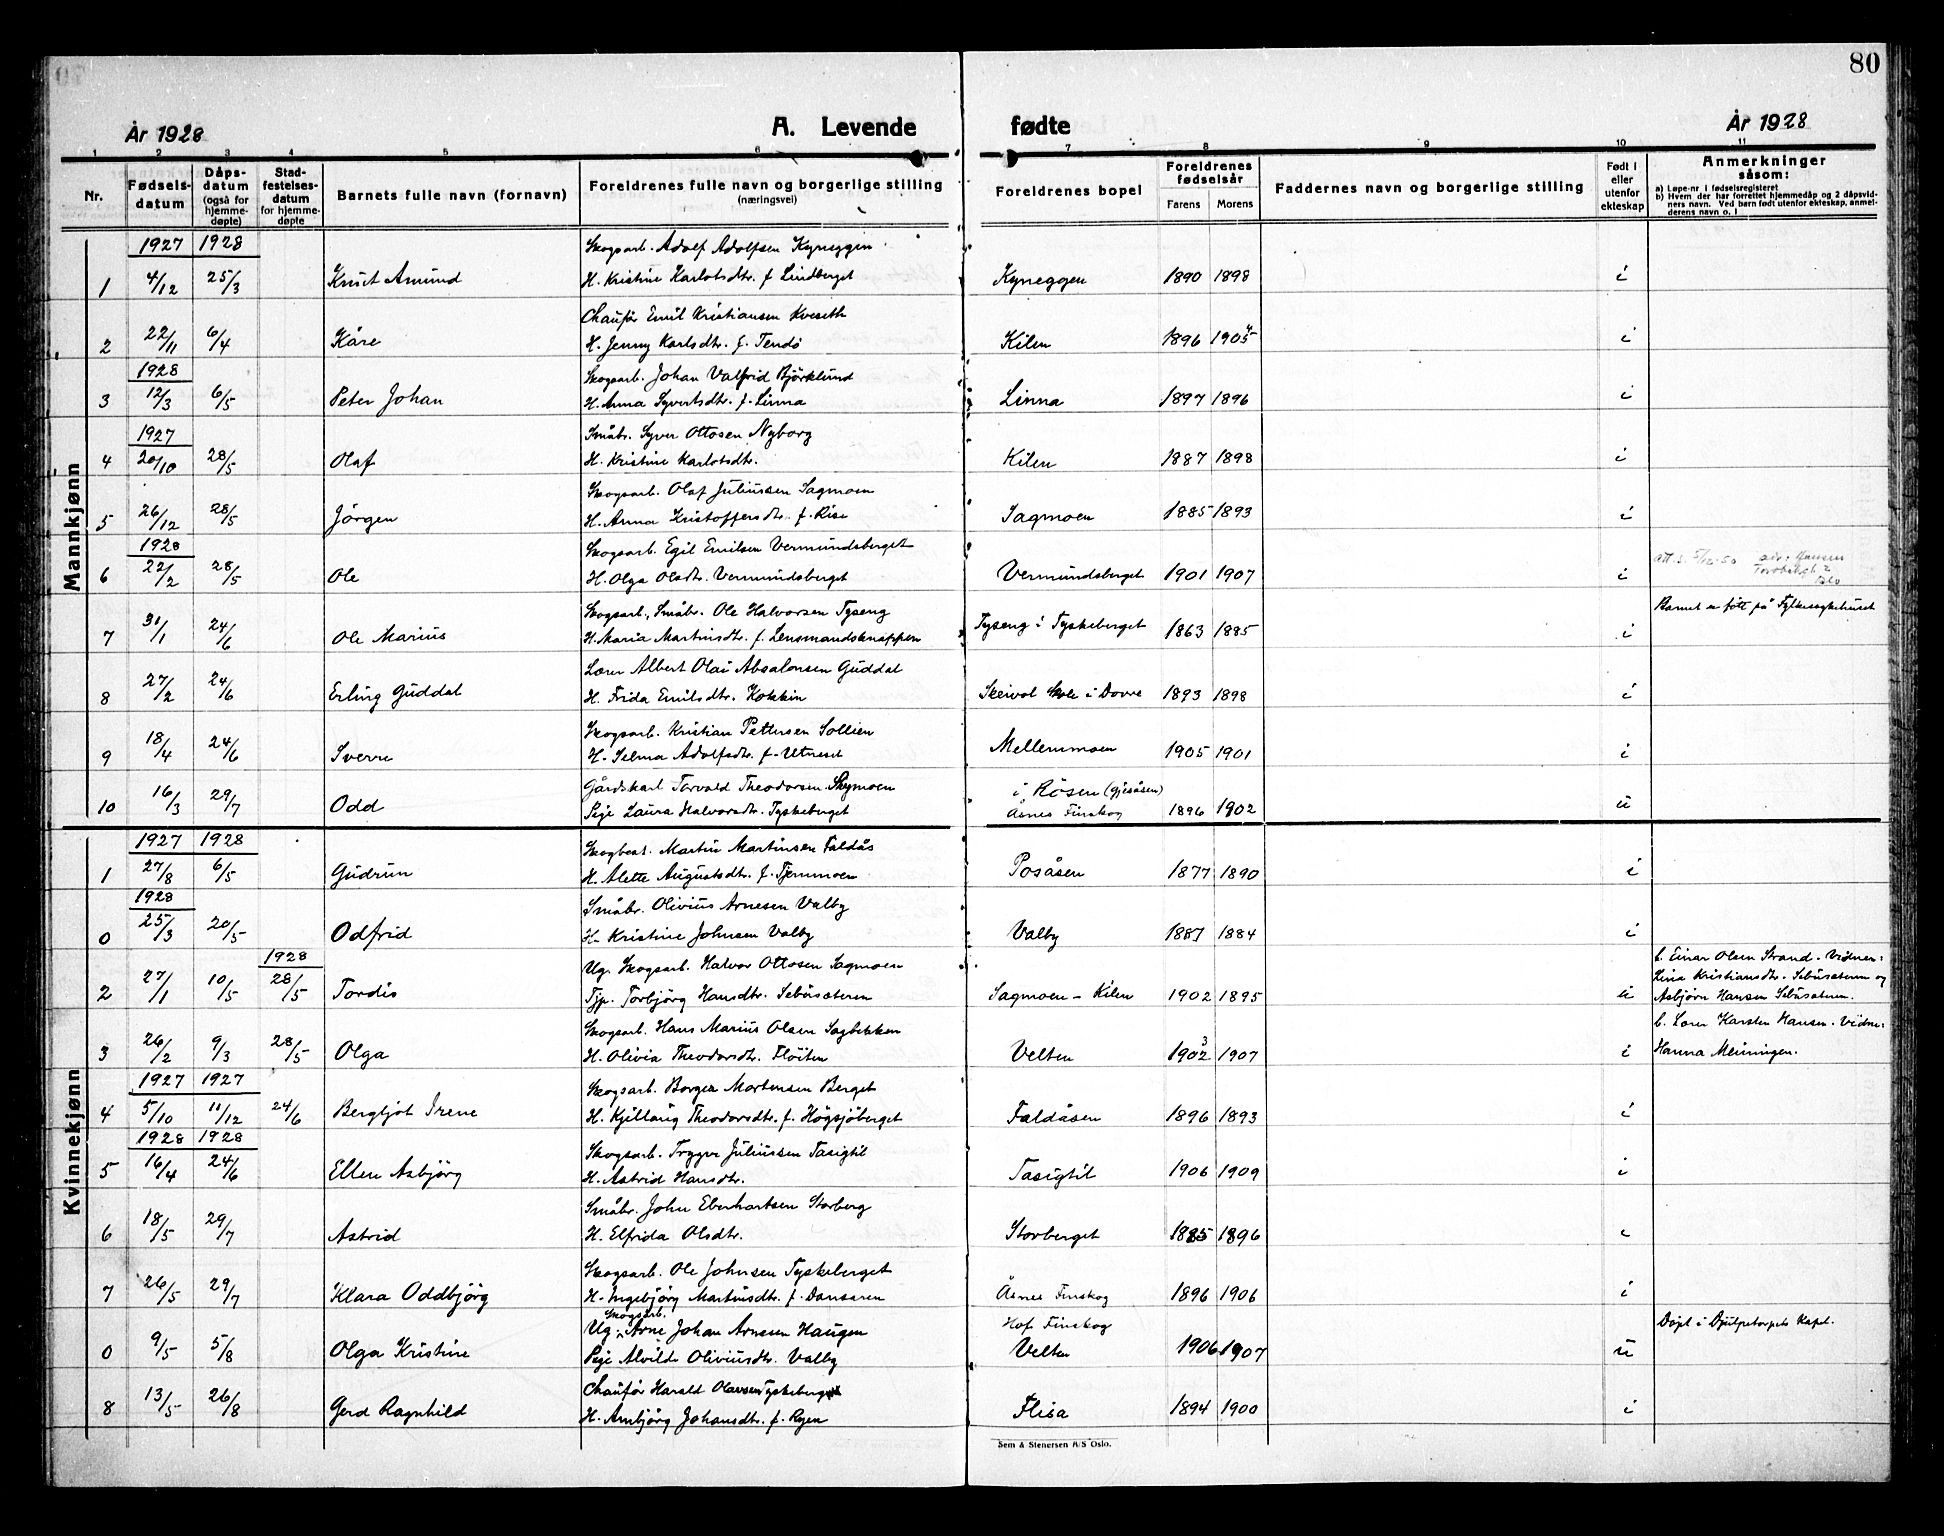 80
År 1928
A. Levende
fødte
År 1928
1 2 3 4 5 6 7 8 9 10 11
Nr.
Fødsels-
datum
Dåps-
datum
(også for
hjemme-
døpte)
Stad-
festelses-
datum
for hjemme-
døpte
Barnets fulle navn (fornavn)
Foreldrenes fulle navn og borgerlige stilling
(næringsvei)
Foreldrenes bopel
Foreldrenes
fødselsår
Farens Morens
Faddernes navn og borgerlige stilling
Født i
eller
utenfor
ekteskap
Anmerkninger
såsom:
a) Løpe-nr. i fødselsregisteret
b) Hvem der har forrettet hjemmedåp og 2 dåpsvid-
ners navn. Ved barn født utenfor ekteskap, anmel-
derens navn o. l
Mannkjønn
1927 1928 Skogsarb. Adolf Adolfsen Kyneggen
1 4/12 25/3 Knut Amund H. Kristine Karlotsdtr. f. Lindberget Kyneggen 1890 1898 i
Chaufør Emil Kristiansen Kveseth
2 22/11 6/4 Kåre H. Jenny Karlsdtr. f. Tendø Kilen 1896 1905 i
1928 Skogsarb. Johan Valfrid Björklund
3 12/3 6/5 Peter Johan H. Anna Syvertsdtr. f. Linna Linna 1897 1896 i
1927 Småbr. Syver Ottosen Nyborg
4 20/10 28/5 Olaf H. Kristine Karlotsdtr. Kilen 1887 1898 i
Skogsarb. Olaf Juliussen Sagmoen
5 26/12 28/5 Jörgen H. Anna Kristoffersdtr. f. Rise Sagmoen 1885 1893 i
1928 Skogsarb. Egil Emilsen Vermundsberget
6 22/2 28/5 Ole H. Olga Olsdtr. Vermundsberget Vermundsberget 1901 1907 i
Skogsarb., Småbr. Ole Halvorsen Tyseng Barnet er født på Fylkessykehuset
7 31/1 24/6 Ole Marius H. Maria Martinsdtr. f. Lensmandsknappen Tyseng i Tyskeberget 1863 1885 i
Lærer Albert Olai Absalonsen Guddal
8 27/2 24/6 Erling Guddal H. Frida Emilsdtr. Kokkin Skeivol Skole i Dovre 1893 1898 i
Skogsarb. Kristian Pettersen Sollien
9 18/4 24/6 Sverre H. Selma Adolfsdtr. f. Utneset Mellemmoen 1905 1901 i
Gårdskarl Torvald Theodorsen Skymoen i Røsen (Gjesåsen)
10 16/3 29/7 Odd Pige Laura Halvorsdtr. Tyskeberget Åsnes Finskog 1896 1902 u
Kvinnekjønn
1927 1928 Skogbest. Martin Martinsen Faldås
1 27/8 6/5 Gudrun H. Alette Augustsdtr. f. Tjernmoen Posåsen 1877 1890 i
1928 Småbr. Olivius Arnesen Valby
0 25/3 20/5 Odfrid H. Kristine Johnsen Valby Valby 1887 1884 i
1928 Ug. Skogsarb. Halvor Ottosen Sagmoen b. Einar Olsen Strand. Vidner:
2 27/1 10/5 28/5 Tordis Tjp. Torbjörg Hansdtr. Sebusæteren Sagmoen - Kilen 1902 1895 u Lina Kristiansdtr. Sebusæteren og
Asbjørn Hansen Sebusæteren.
Skogsarb. Hans Marius Olsen Sagbekken b. Lærer Karsten Hansen. Vidne:
3 26/2 9/3 28/5 Olga H. Olivia Theodorsdtr. Fløiten Velten 1902 3 1907 i Hanna Meiningen.
1927 1927 Skogsarb. Borger Mortensen Berget
4 5/10 11/12 24/6 Bergljot Irene H. Kjellaug Theodorsdtr. f. Högsjöberget Faldåsen 1896 1893 i
1928 1928 Skogsarb. Trygve Juliussen Tasigtil
5 16/4 24/6 Ellen Asbjörg H. Astrid Hansdtr. Tasigtil 1906 1909 i
Småbr. John Eberhartsen Storberg
6 18/5 29/7 Astrid H. Elfrida Olsdtr. Storberget 1885 1896 i
Skogsarb. Ole Johnsen Tyskeberget
7 26/5 29/7 Klara Oddbjörg H. Ingebjörg Martinsdtr. f. Dansaren Åsnes Finskog 1896 1906 i
Skogsarb.
Ug. Arne Johan Arnesen Haugen Hof Finskog Døpt i Djulpetorpets Kapel.
0 9/5 5/8 Olga Kristine Pige Alvilde Oliviusdtr. Valby Velten 1906 1907 u
Chaufør Harald Olavsen Tyskeberget
8 13/5 26/8 Gerd Ragnhild H. Ambjörg Johansdtr. f. Ryen Flisa 1894 1900 i
Sem & Stenersen A/S Oslo.